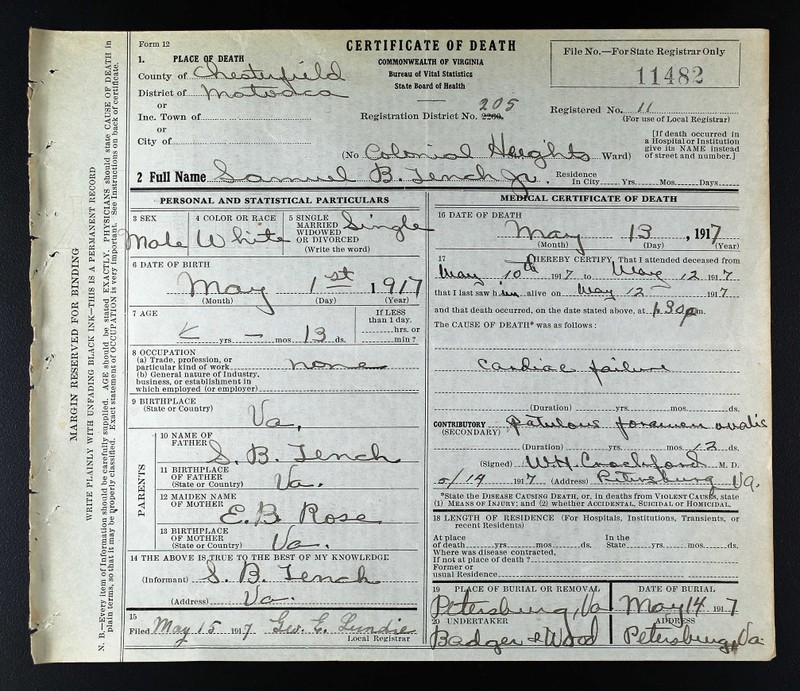 MARGIN RESERVED FOR BINDING
WRITE PLAINLY WITH UNFADING BLACK INK—THIS IS A PERMANENT RECORD
N. B.—Every item of Information should be carefully supplied. AGE should be stated EXACTLY. PHYSICIANS should state CAUSE OF DEATH in
plain terms, so that it may be properly classified. Exact statement of OCCUPATION is very important. See Instructions on back of certificate.
Form 12
CERTIFICATE OF DEATH
COMMONWEALTH OF VIRGINIA
Bureau of Vital Statistics
State Board of Health
File No.—For State Registrar Only
11482
1. PLACE OF DEATH
County of Chesterfield
District of Matoaca
or
Inc. Town of
or
City of
205
Registration District No. 2260.
Registered No. 11
(For use of Local Registrar)
(No Colonial Heights Ward)
[If death occurred in
a Hospital or Institution
give its NAME instead
of street and number.]
2 Full Name Samuel B. Tench Jr.
Residence
In City Yrs. Mos. Days
PERSONAL AND STATISTICAL PARTICULARS
3 SEX
Male
4 COLOR OR RACE
White
5 SINGLE
MARRIED
WIDOWED
OR DIVORCED
(Write the word)
Single
6 DATE OF BIRTH
May 1st 1917
(Month) (Day) (Year)
7 AGE
— 13
yrs. mos. ds.
IF LESS
than 1 day.
hrs. or
min ?
8 OCCUPATION
(a) Trade, profession, or
particular kind of work none
(b) General nature of Industry,
business, or establishment in
which employed (or employer)
9 BIRTHPLACE
(State or Country)
Va.
PARENTS
10 NAME OF
FATHER
S. B. Tench
11 BIRTHPLACE
OF FATHER
(State or Country)
Va.
12 MAIDEN NAME
OF MOTHER
E. B. Rose
13 BIRTHPLACE
OF MOTHER
(State or Country)
Va.
14 THE ABOVE IS TRUE TO THE BEST OF MY KNOWLEDGE
(Informant) S. B. Tench
(Address) Va.
15
Filed May 15 1917 Geo. E. Lundie
Local Registrar
MEDICAL CERTIFICATE OF DEATH
16 DATE OF DEATH
May 13, 1917
(Month) (Day) (Year)
17 I HEREBY CERTIFY, That I attended deceased from
May 10th 1917 to May 12 1917
that I last saw him alive on May 12 1917
and that death occurred, on the date stated above, at 1.30 p m.
The CAUSE OF DEATH* was as follows :
Cardiac failure
(Duration) yrs. mos. ds.
CONTRIBUTORY Patulous foramen ovalis
(SECONDARY)
(Duration) yrs. mos. 12 ds.
(Signed) W. H. Crockford M. D.
5/14 1917 (Address) Petersburg Va.
*State the DISEASE CAUSING DEATH, or, in deaths from VIOLENT CAUSES, state
(1) MEANS OF INJURY; and (2) whether ACCIDENTAL, SUICIDAL or HOMICIDAL.
18 LENGTH OF RESIDENCE (For Hospitals, Institutions, Transients, or
recent Residents)
At place
of death yrs. mos. ds.
In the
State yrs. mos. ds.
Where was disease contracted,
If not at place of death ?
Former or
usual Residence
19 PLACE OF BURIAL OR REMOVAL
Petersburg, Va
DATE OF BURIAL
May 14 1917
20 UNDERTAKER
Badger & Wood
ADDRESS
Petersburg, Va.